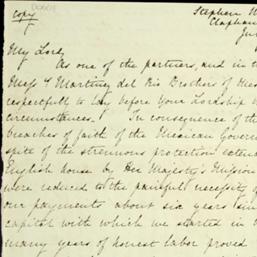 Copy
Stephen
Clapham
My Lord,
As one of the partners, and in th
Messrs Martinez del Rio Brothers of Mex
respectfully to lay before Your Lordship
circumstances. In consequence of the
breaches of faith of the Mexican Govern
spite of the strenuous protection extend
English house by Her Majesty's Mission
were reduced to the painful necessity o
our payments about six years sin
capital with which we started in
many years of honest labor proved